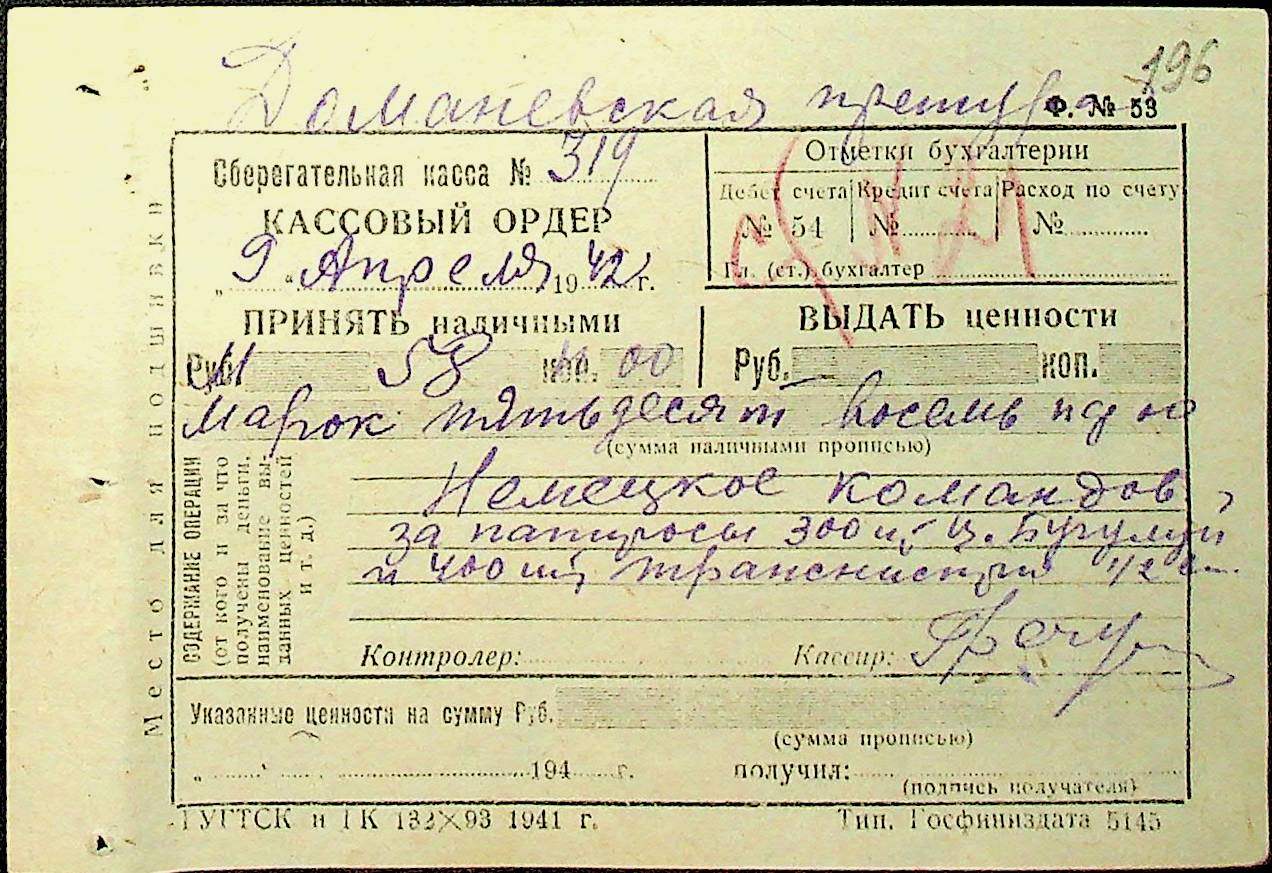 196
Доманевская претура
Ф. № 53
Сберегательная касса № 319
КАССОВЫЙ ОРДЕР
„ 9 “ Апреля 1942 г.
Отметки бухгалтерии
Дебет счета Кредит счета Расход по счету
№ 54 № №
Гл. (ст.) бухгалтер
ПРИНЯТЬ наличными
Руб. 58 коп. 00
ВЫДАТЬ ценности
Руб. коп.
Марок пятьдесят восемь
(сумма наличными прописью)
Немецкое командов
за папиросы 300 шт
и 400 шт
СОДЕРЖАНИЕ ОПЕРАЦИИ
(от кого и за что
получены деньги,
наименование вы-
данных ценностей
и т. д.)
Контролер: Кассир:
Указанные ценности на сумму Руб.
(сумма прописью)
„ “ 194 г. получил:
(подпись получателя)
ГУГТСК и ГК 132X93 1941 г. Тип. Госфиниздата 5145
Место для подшивки